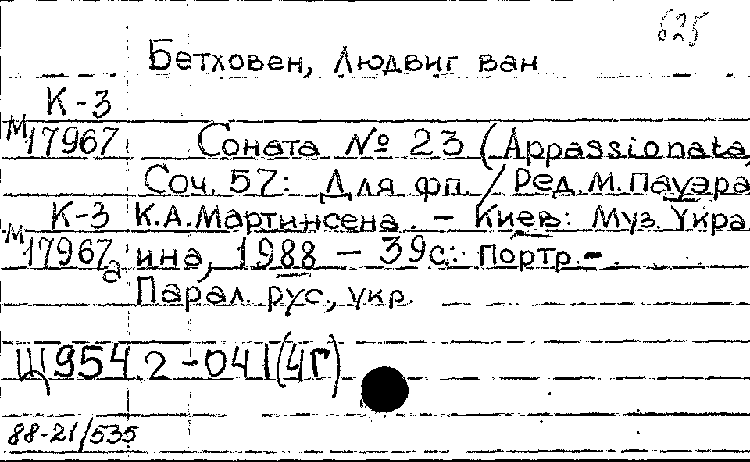 625
Бетховен, Людвиг ван
К-3
м 17967 Соната № 23 (Appassionata)
Соч. 57: Для фп. / Ред. М. Пауэра
К-3 К.А. Мартинсена. – Киев: Муз. Укра
м 17967а ина, 1988 – 39с.: портр. –
Парал. рус., укр.
Щ954.2-041(4Г)
88-21/535